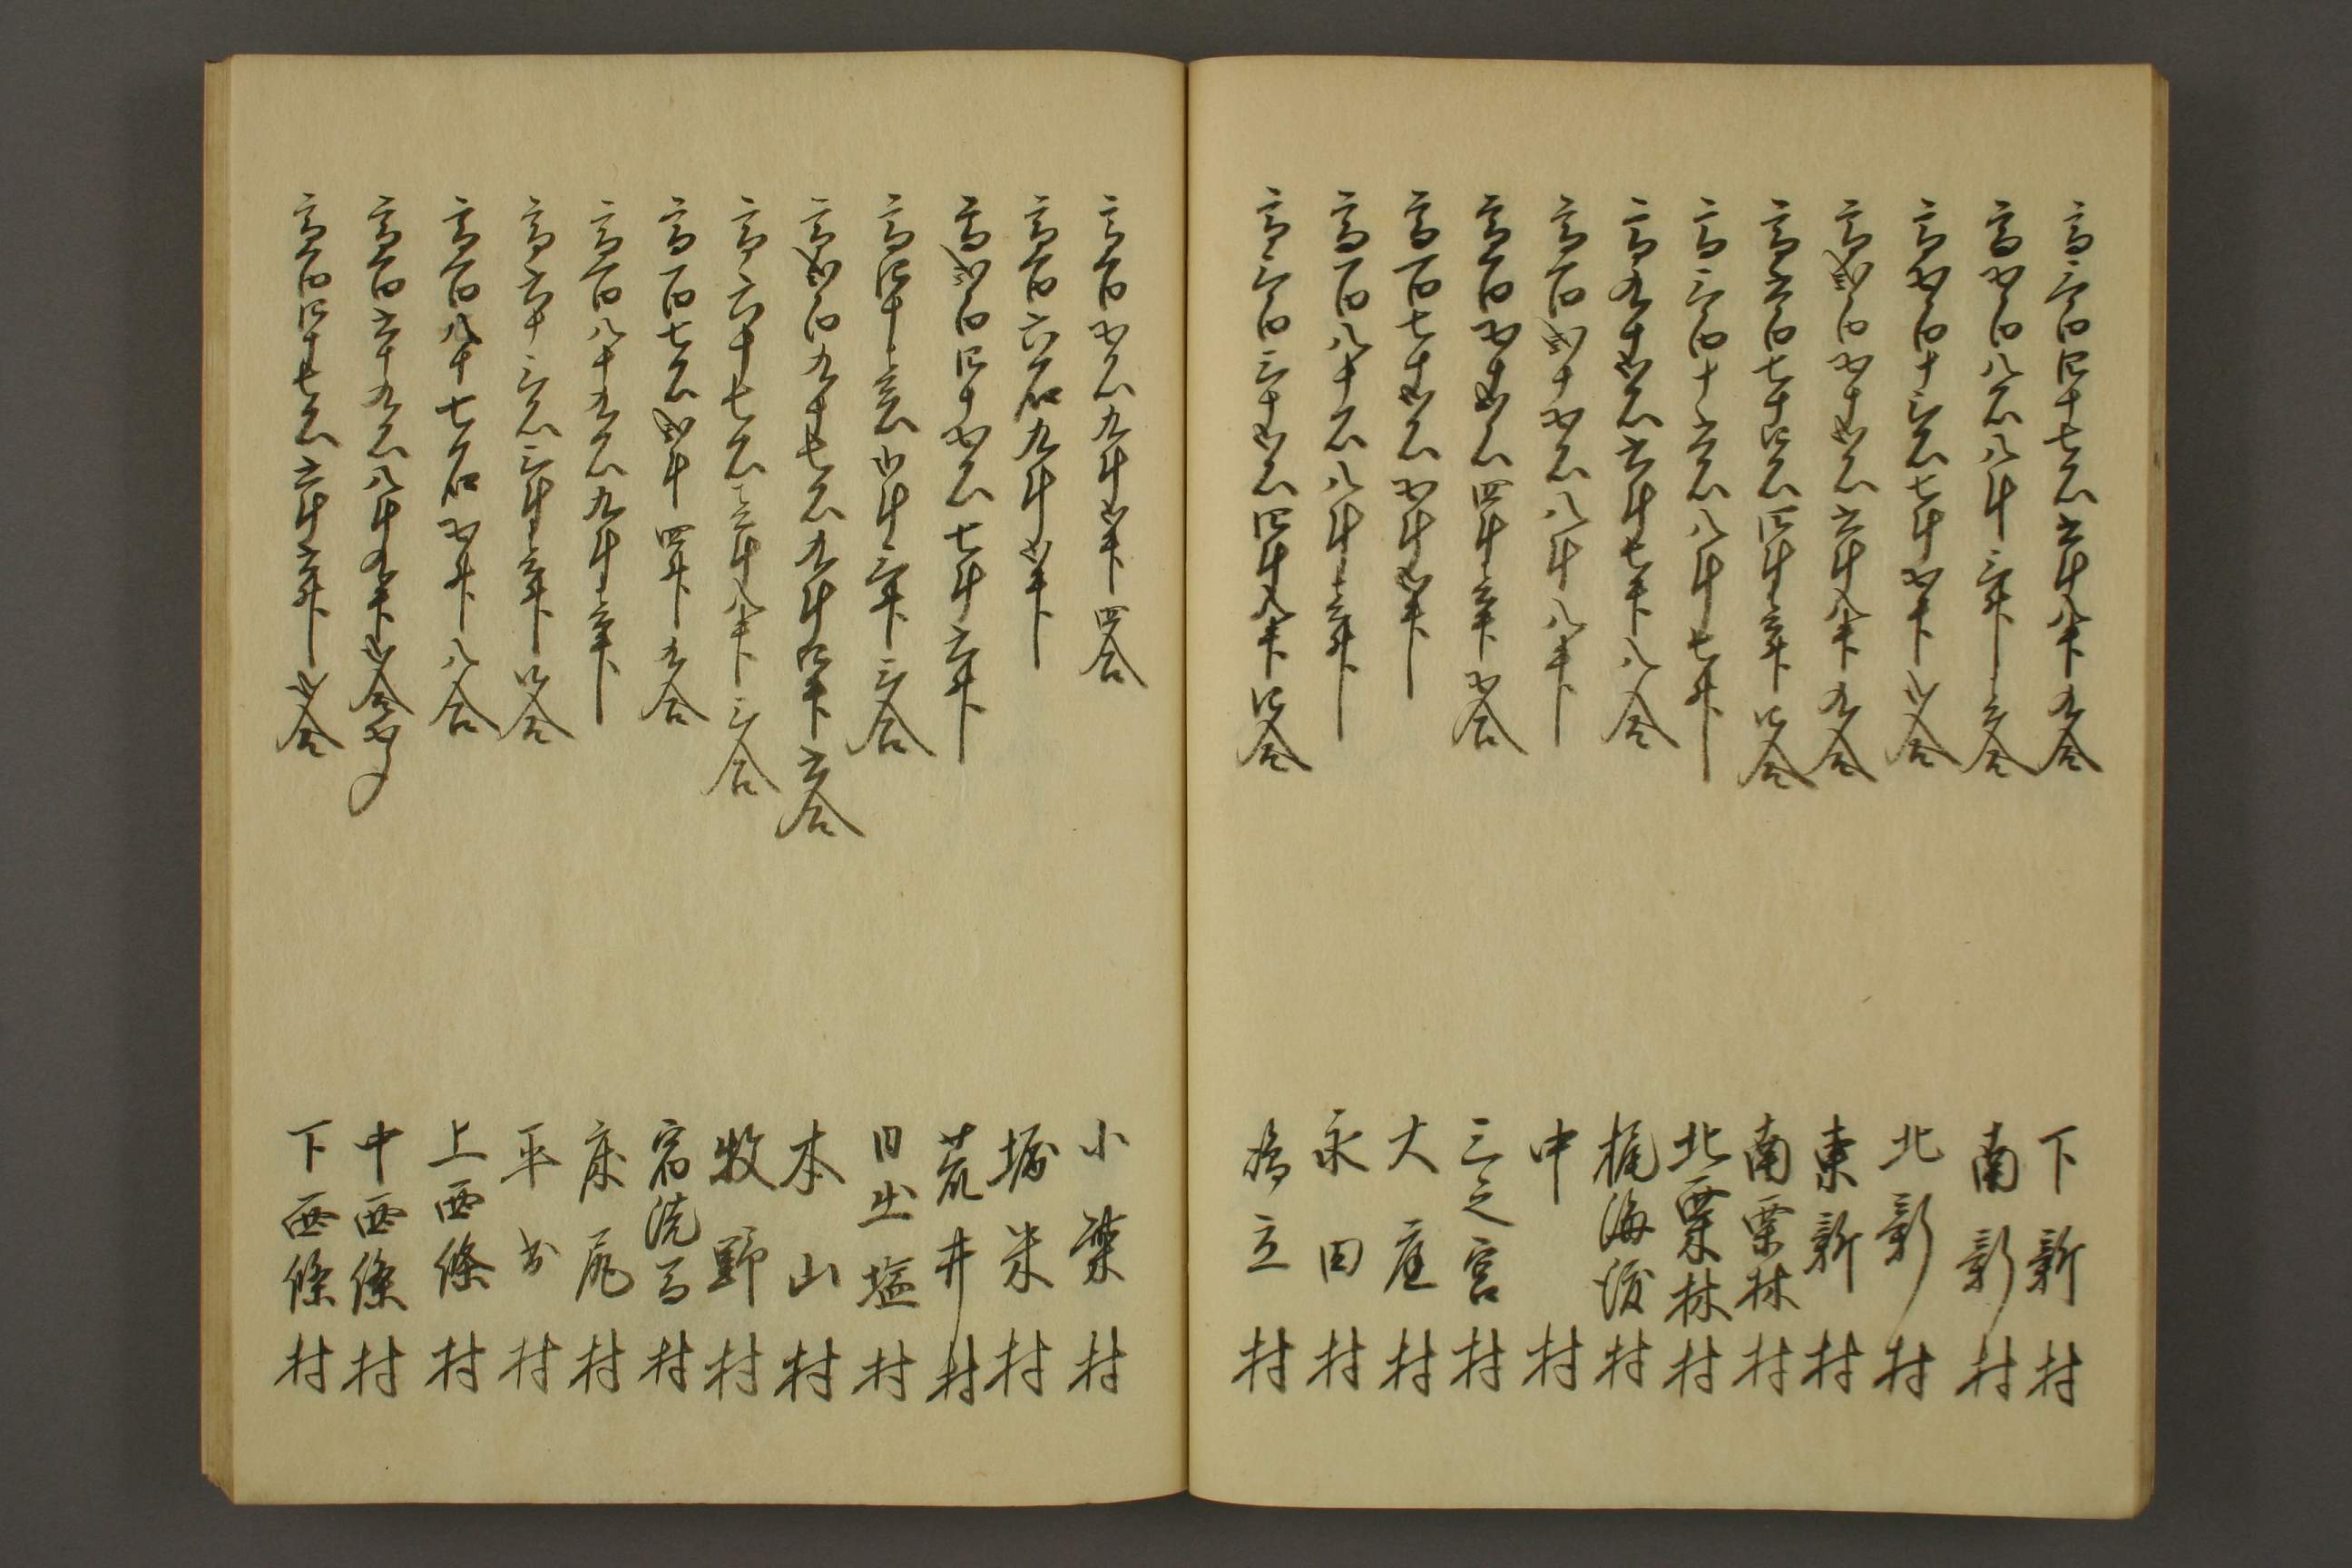 高三百四十七石六斗八升九合 下新村
高五百八石八斗三升六合 南新村
高五百十三石七斗五升弐合 北新村
高弐百五十壱石六斗八升九合 東新村
高六百七十四石四斗六升四合 南栗林村
高三百十六石八斗七升 北栗林村
高九十壱石六斗七升八合 梶海渡村
高百弐十五石八斗八升 中村
高百五十壱石四斗六升五合 三之宮村
高百七十壱石五斗弐升 大庭村
高百八十石八斗六升 永田村
高三百三十壱石四斗八升四合 嶋立村
高百五石九斗弐升四合 小柴村
高百六石九斗弐升 堀米村
高弐百四十五石七斗六升 荒井村
高四十六石弐斗三升三合 日出塩村
高弐百九十七石九斗四升六合 本山村
高六十七石六斗八升三合 牧野村
高百七石弐斗四升九合 宿洗馬村
高百八十九石九斗六升 床尾村
高六十三石三斗六升四合 平出村
高百八十七石五升八合 上西條村
高百六十九石八斗九升弐合五夕 中西條村
高百四十七石六斗六升弐合 下西條村